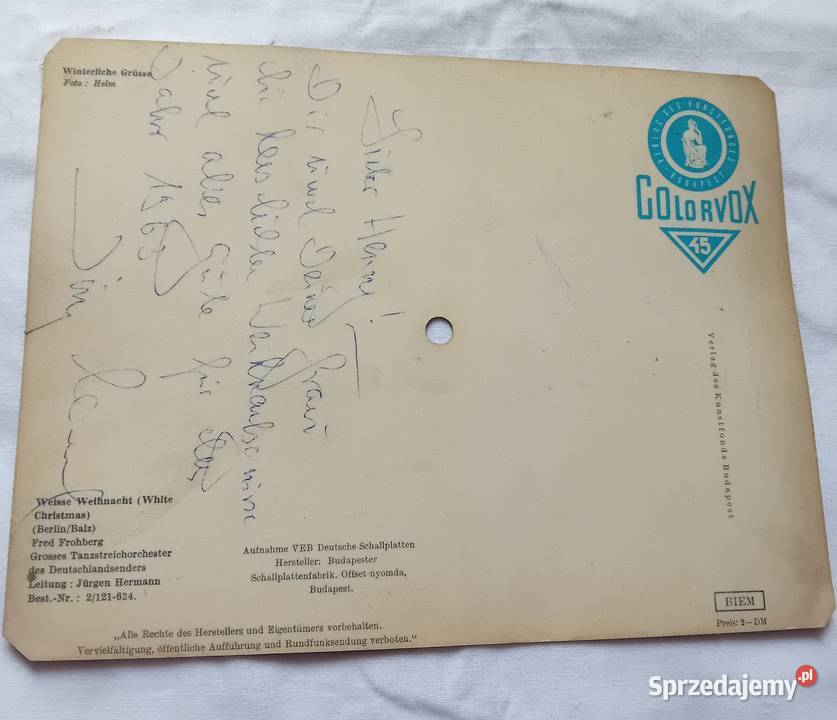 Winterliche Grüsse
Foto : Helm
Lieber Henry!
Dir und Deiner Frau
die herzlichsten Weihnachtsgrüsse
und alles Gute für das
Jahr 1963
Dein
VERLAG DES KUNSTFONDES
BUDAPEST
COLORVOX
45
Verlag des Kunstfonds Budapest
Weisse Weihnacht (White
Christmas)
(Berlin/Balz)
Fred Frohberg
Grosses Tanzstreichorchester
des Deutschlandsenders
Leitung : Jürgen Hermann
Best.-Nr. : 2/121-624.
Aufnahme VEB Deutsche Schallplatten
Hersteller: Budapester
Schallplattenfabrik. Offset-nyomda,
Budapest.
„Alle Rechte des Herstellers und Eigentümers vorbehalten.
Vervielfältigung, öffentliche Aufführung und Rundfunksendung verboten."
BIEM
Preis: 2-DM
Sprzedajemy.pl